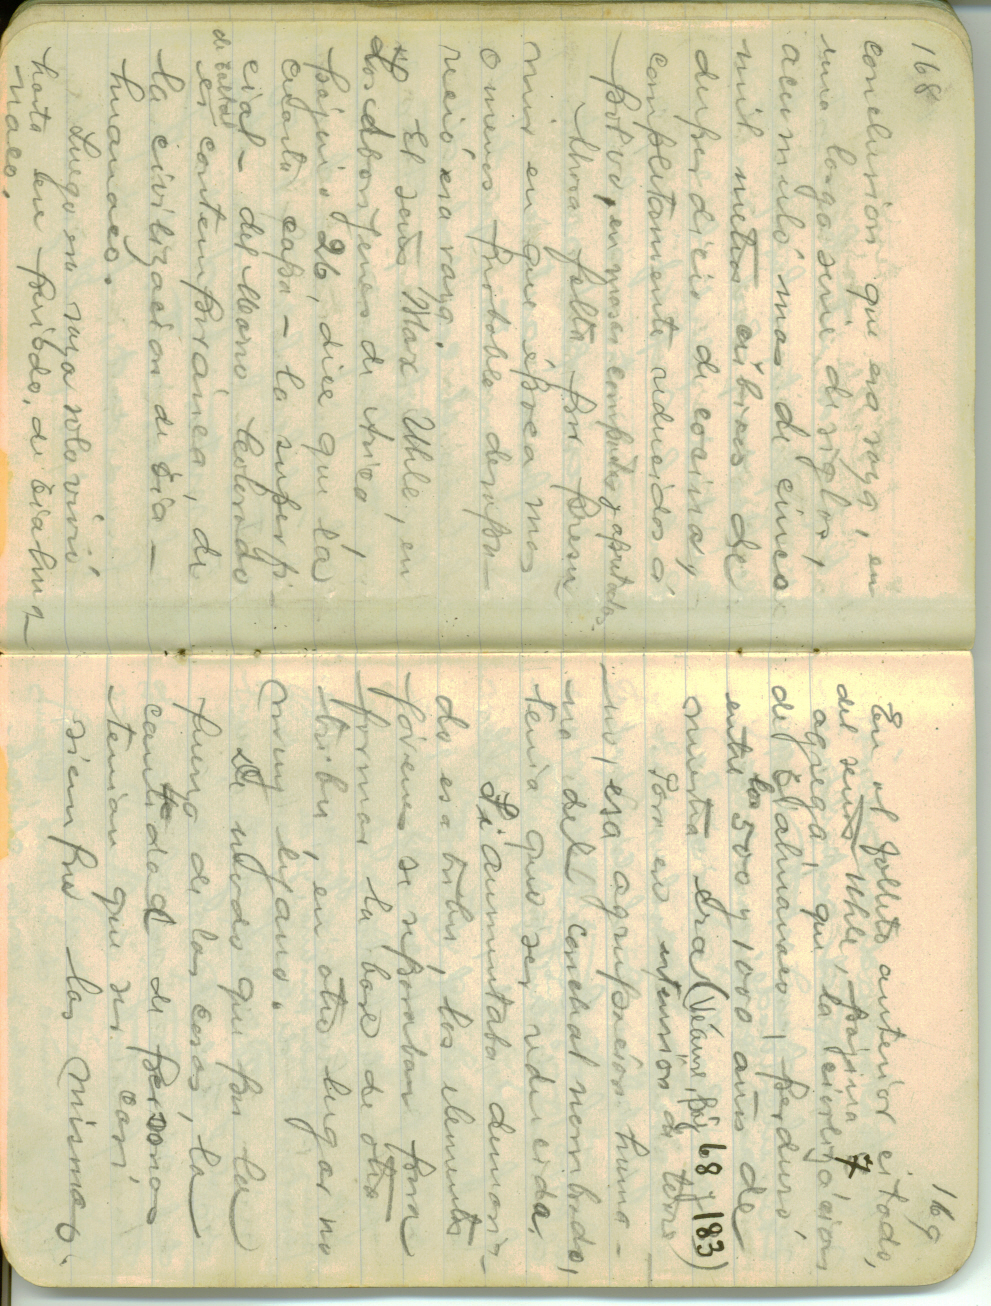 168
conclusion que esa raza, en
una larga serie de siglos,
acumuló mas de cinco
mil metros cúbicos de
desperdicio de cocina, y
completamente reducidos á
polvo, en masa compacta y apretada.
Ahora falta por presu
mir en que época mas
o menos probable desapa-
reció esa raza.
El señor Max Uhle, en
los aborijenes de Arica,
pájina 26, dice que la
cuarta capa - la superfi-
cial - del Morro
es contemporánea, de
la civilizacion de Tia-
huanaco.
Luego esa raza solo vivió
hasta ese período, de Tiahua-
naco.
169
En el folleto anterior citado,
del señor Uhle, pájina 7
agrega, que la civilizacion
de Tiahuanaco, perduró,
entre los 500 y 1000 años de
nuestra era. (Véanse, páj 68 y 183)
Por eso
esa agrupacion huma-
na del conchal nombrado,
tenia que ser reducida.
Si aumentaba demasia-
do esa tribu, los elementos
jóvenes se separaban para
formar la base de otra
tribu, en otro lugar no
muy lejano.
De modo que por la
fuerza de las cosas, la
cantidad de personas
tenian que ser casi
siempre las mismas.